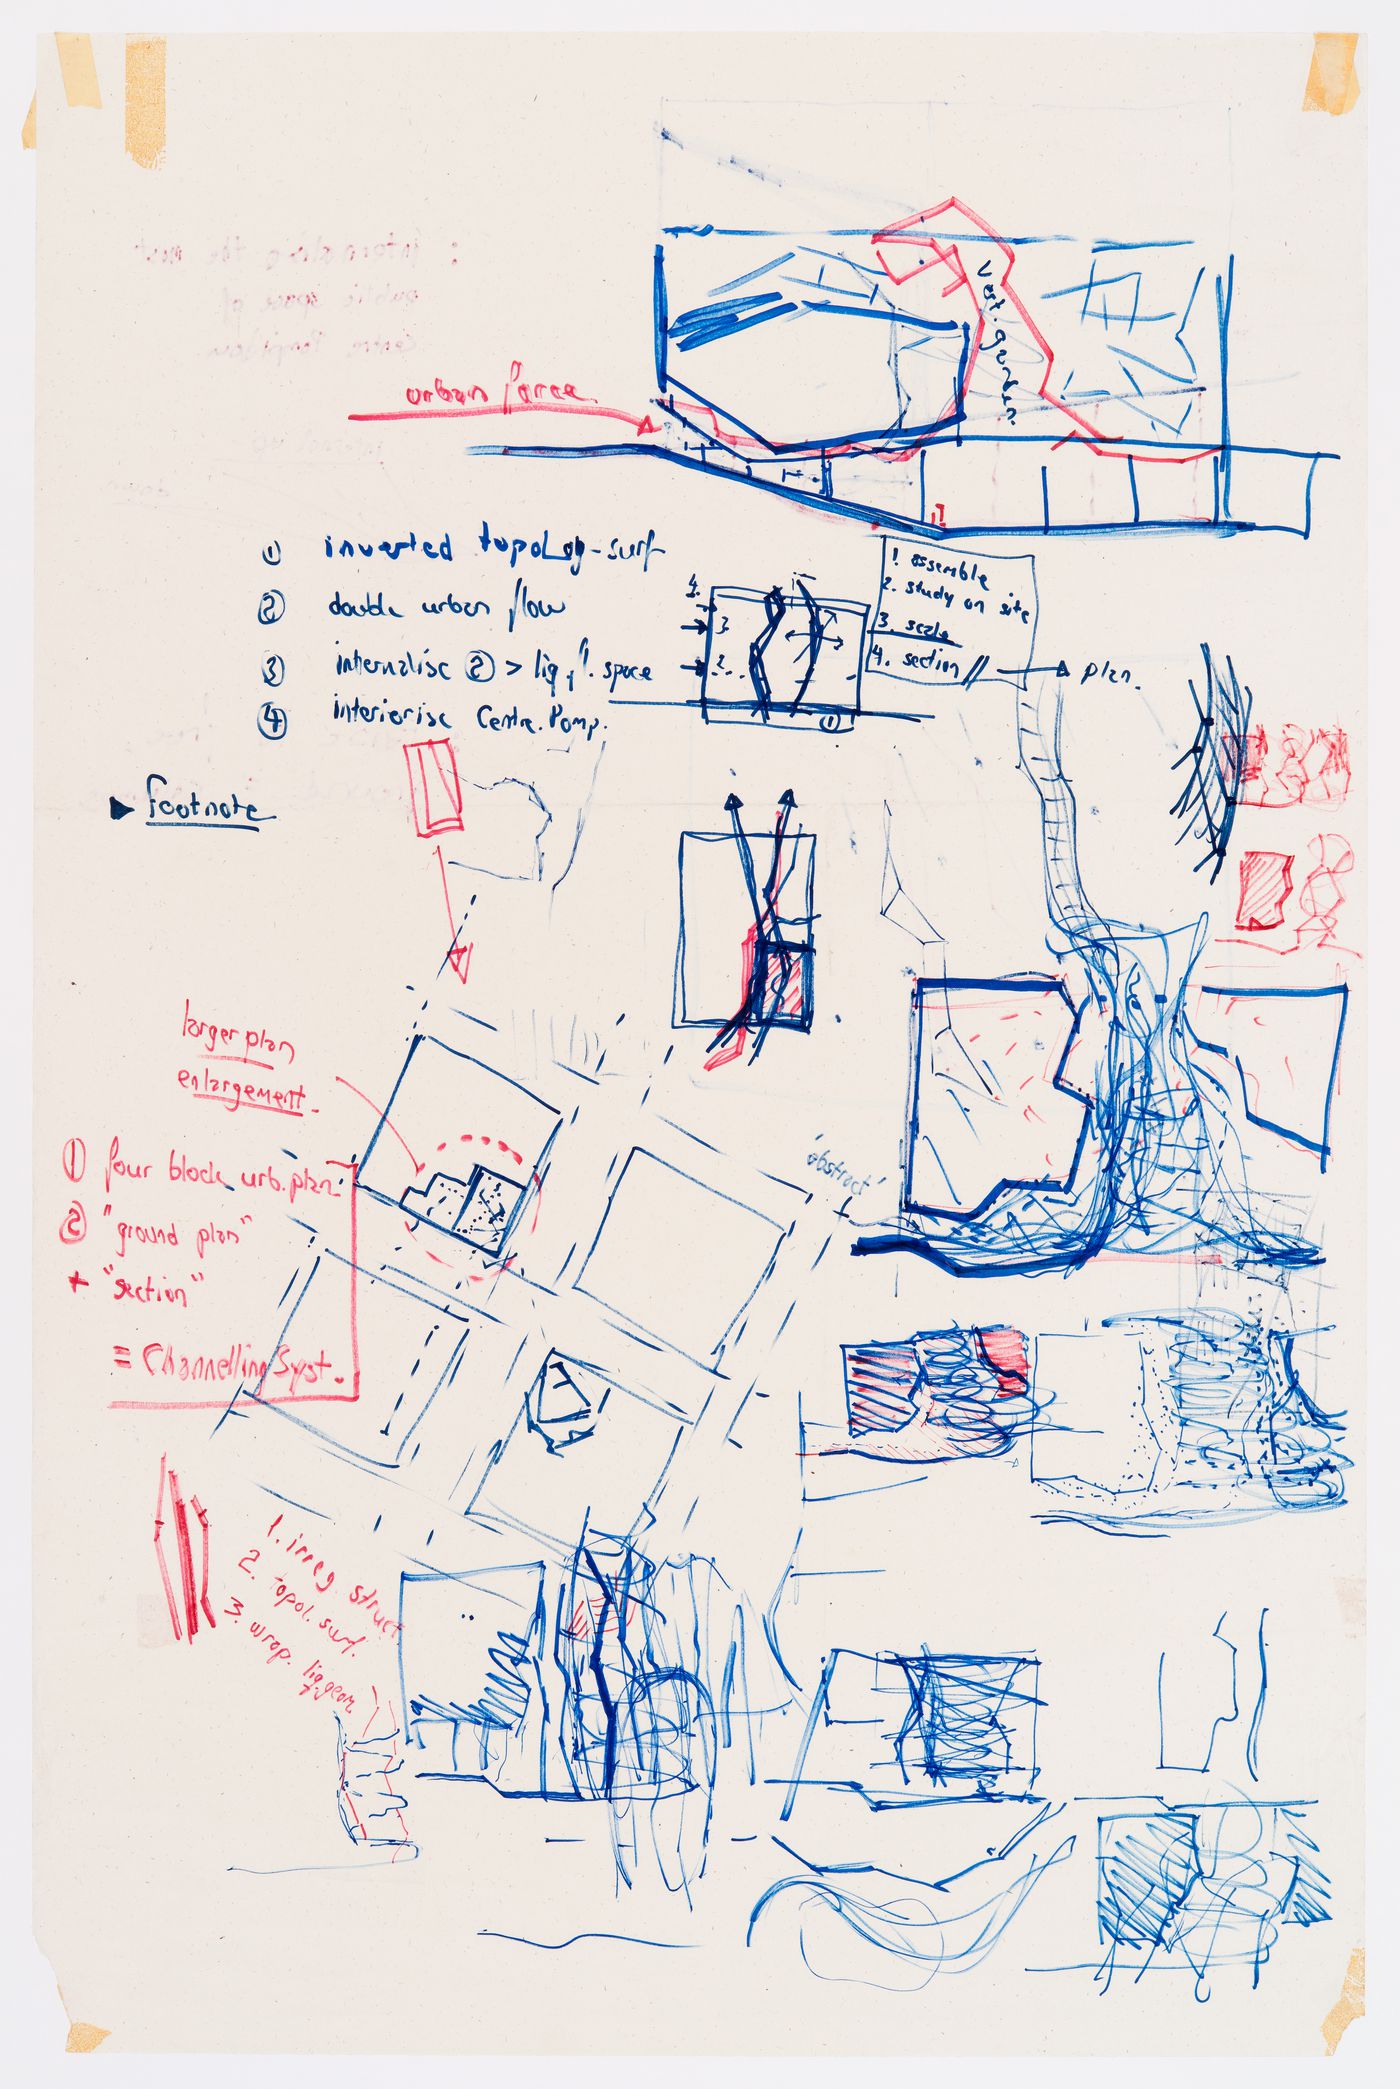 vert. garden.
urban force
① inverted topolog-surf
② double urban flow
③ internalise ② > liq. fl. space
④ interiorise Centre. Pomp.
4.
3.
2...
①
1. assemble
2. study on site
3. scale
4. section // → plan.
▶ footnote
larger plan
enlargement.
① four block urb. plan.
② "ground plan"
+ "section"
= Channelling Syst.
'abstract'
1. irreg. struct
2. topol. surf.
3. wrap. liq. geom.